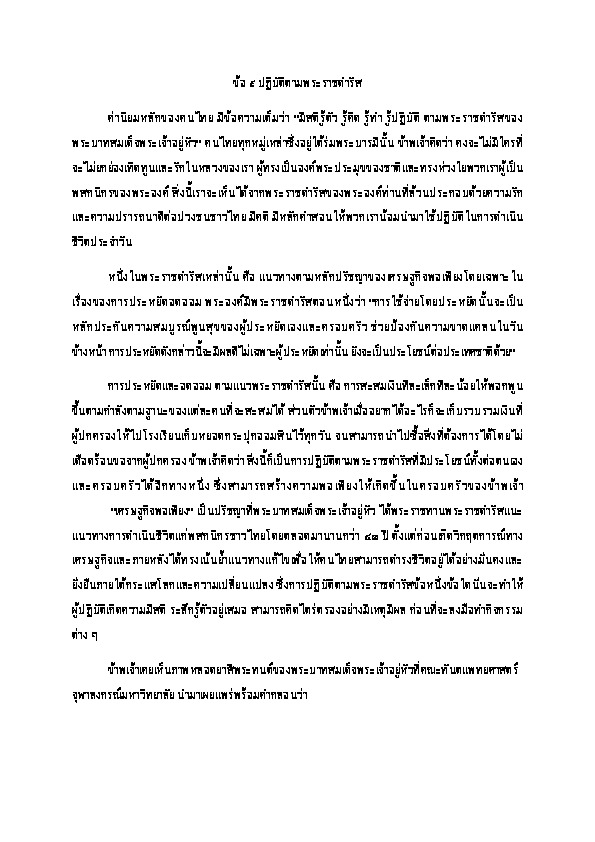 ข้อ ๙ ปฏิบัติตามพระราชดำรัส
ค่านิยมหลักของคนไทย มีข้อความเต็มว่า "มีสติรู้ตัว รู้คิด รู้ทำ รู้ปฏิบัติ ตามพระราชดำรัสของ
พระบาทสมเด็จพระเจ้าอยู่หัว" คนไทยทุกหมู่เหล่าซึ่งอยู่ใต้ร่มพระบารมีนั้น ข้าพเจ้าคิดว่า คงจะไม่มีใครที่
จะไม่ยกย่องเทิดทูนและรักในหลวงของเรา ผู้ทรงเป็นองค์พระประมุขของชาติและทรงห่วงใยพวกเราผู้เป็น
พสกนิกรของพระองค์ สิ่งนี้เราจะเห็นได้จากพระราชดำรัสของพระองค์ท่านที่ล้วนประกอบด้วยความรัก
และความปรารถนาดีต่อปวงชนชาวไทย มีคติ มีหลักคำสอนให้พวกเราน้อมนำมาใช้ปฏิบัติในการดำเนิน
ชีวิตประจำวัน
หนึ่งในพระราชดำรัสเหล่านั้น คือ แนวทางตามหลักปรัชญาของเศรษฐกิจพอเพียงโดยเฉพาะ ใน
เรื่องของการประหยัดอดออม พระองค์มีพระราชดำรัสตอนหนึ่งว่า "การใช้จ่ายโดยประหยัดนั้นจะเป็น
หลักประกันความสมบูรณ์พูนสุขของผู้ประหยัดเองและครอบครัว ช่วยป้องกันความขาดแคลนในวัน
ข้างหน้า การประหยัดดังกล่าวนี้จะมีผลดีไม่เฉพาะผู้ประหยัดเท่านั้น ยังจะเป็นประโยชน์ต่อประเทศชาติด้วย"
การประหยัดและอดออม ตามแนวพระราชดำรัสนั้น คือ การสะสมเงินทีละเล็กทีละน้อยให้พอกพูน
ขึ้นตามกำลังตามฐานะของแต่ละคนที่จะสะสมได้ ส่วนตัวข้าพเจ้าเมื่ออยากได้อะไรก็จะเก็บรวบรวมเงินที่
ผู้ปกครองให้ไปโรงเรียนเก็บหยอดกระปุกออมสินไว้ทุกวัน จนสามารถนำไปซื้อสิ่งที่ต้องการได้โดยไม่
เดือดร้อนขอจากผู้ปกครอง ข้าพเจ้าคิดว่าสิ่งนี้ก็เป็นการปฏิบัติตามพระราชดำรัสที่มีประโยชน์ทั้งต่อตนเอง
และครอบครัวได้อีกทางหนึ่ง ซึ่งสามารถสร้างความพอเพียงให้เกิดขึ้นในครอบครัวของข้าพเจ้า
"เศรษฐกิจพอเพียง" เป็นปรัชญาที่พระบาทสมเด็จพระเจ้าอยู่หัว ได้พระราชทานพระราชดำรัสแนะ
แนวทางการดำเนินชีวิตแก่พสกนิกรชาวไทยโดยตลอดมานานกว่า ๔๘ ปี ตั้งแต่ก่อนเกิดวิกฤตการณ์ทาง
เศรษฐกิจและภายหลังได้ทรงเน้นย้ำแนวทางแก้ไขเพื่อให้คนไทยสามารถดำรงชีวิตอยู่ได้อย่างมั่นคงและ
ยั่งยืนภายใต้กระแสโลกและความเปลี่ยนแปลง ซึ่งการปฏิบัติตามพระราชดำรัสข้อหนึ่งข้อใดนั้นจะทำให้
ผู้ปฏิบัติเกิดความมีสติ ระลึกรู้ตัวอยู่เสมอ สามารถคิดไตร่ตรองอย่างมีเหตุมีผล ก่อนที่จะลงมือทำกิจกรรม
ต่าง ๆ
ข้าพเจ้าเคยเห็นภาพหลอดยาสีพระทนต์ของพระบาทสมเด็จพระเจ้าอยู่หัวที่คณะทันตแพทยศาสตร์
จุฬาลงกรณ์มหาวิทยาลัย นำมาเผยแพร่พร้อมคำกลอนว่า